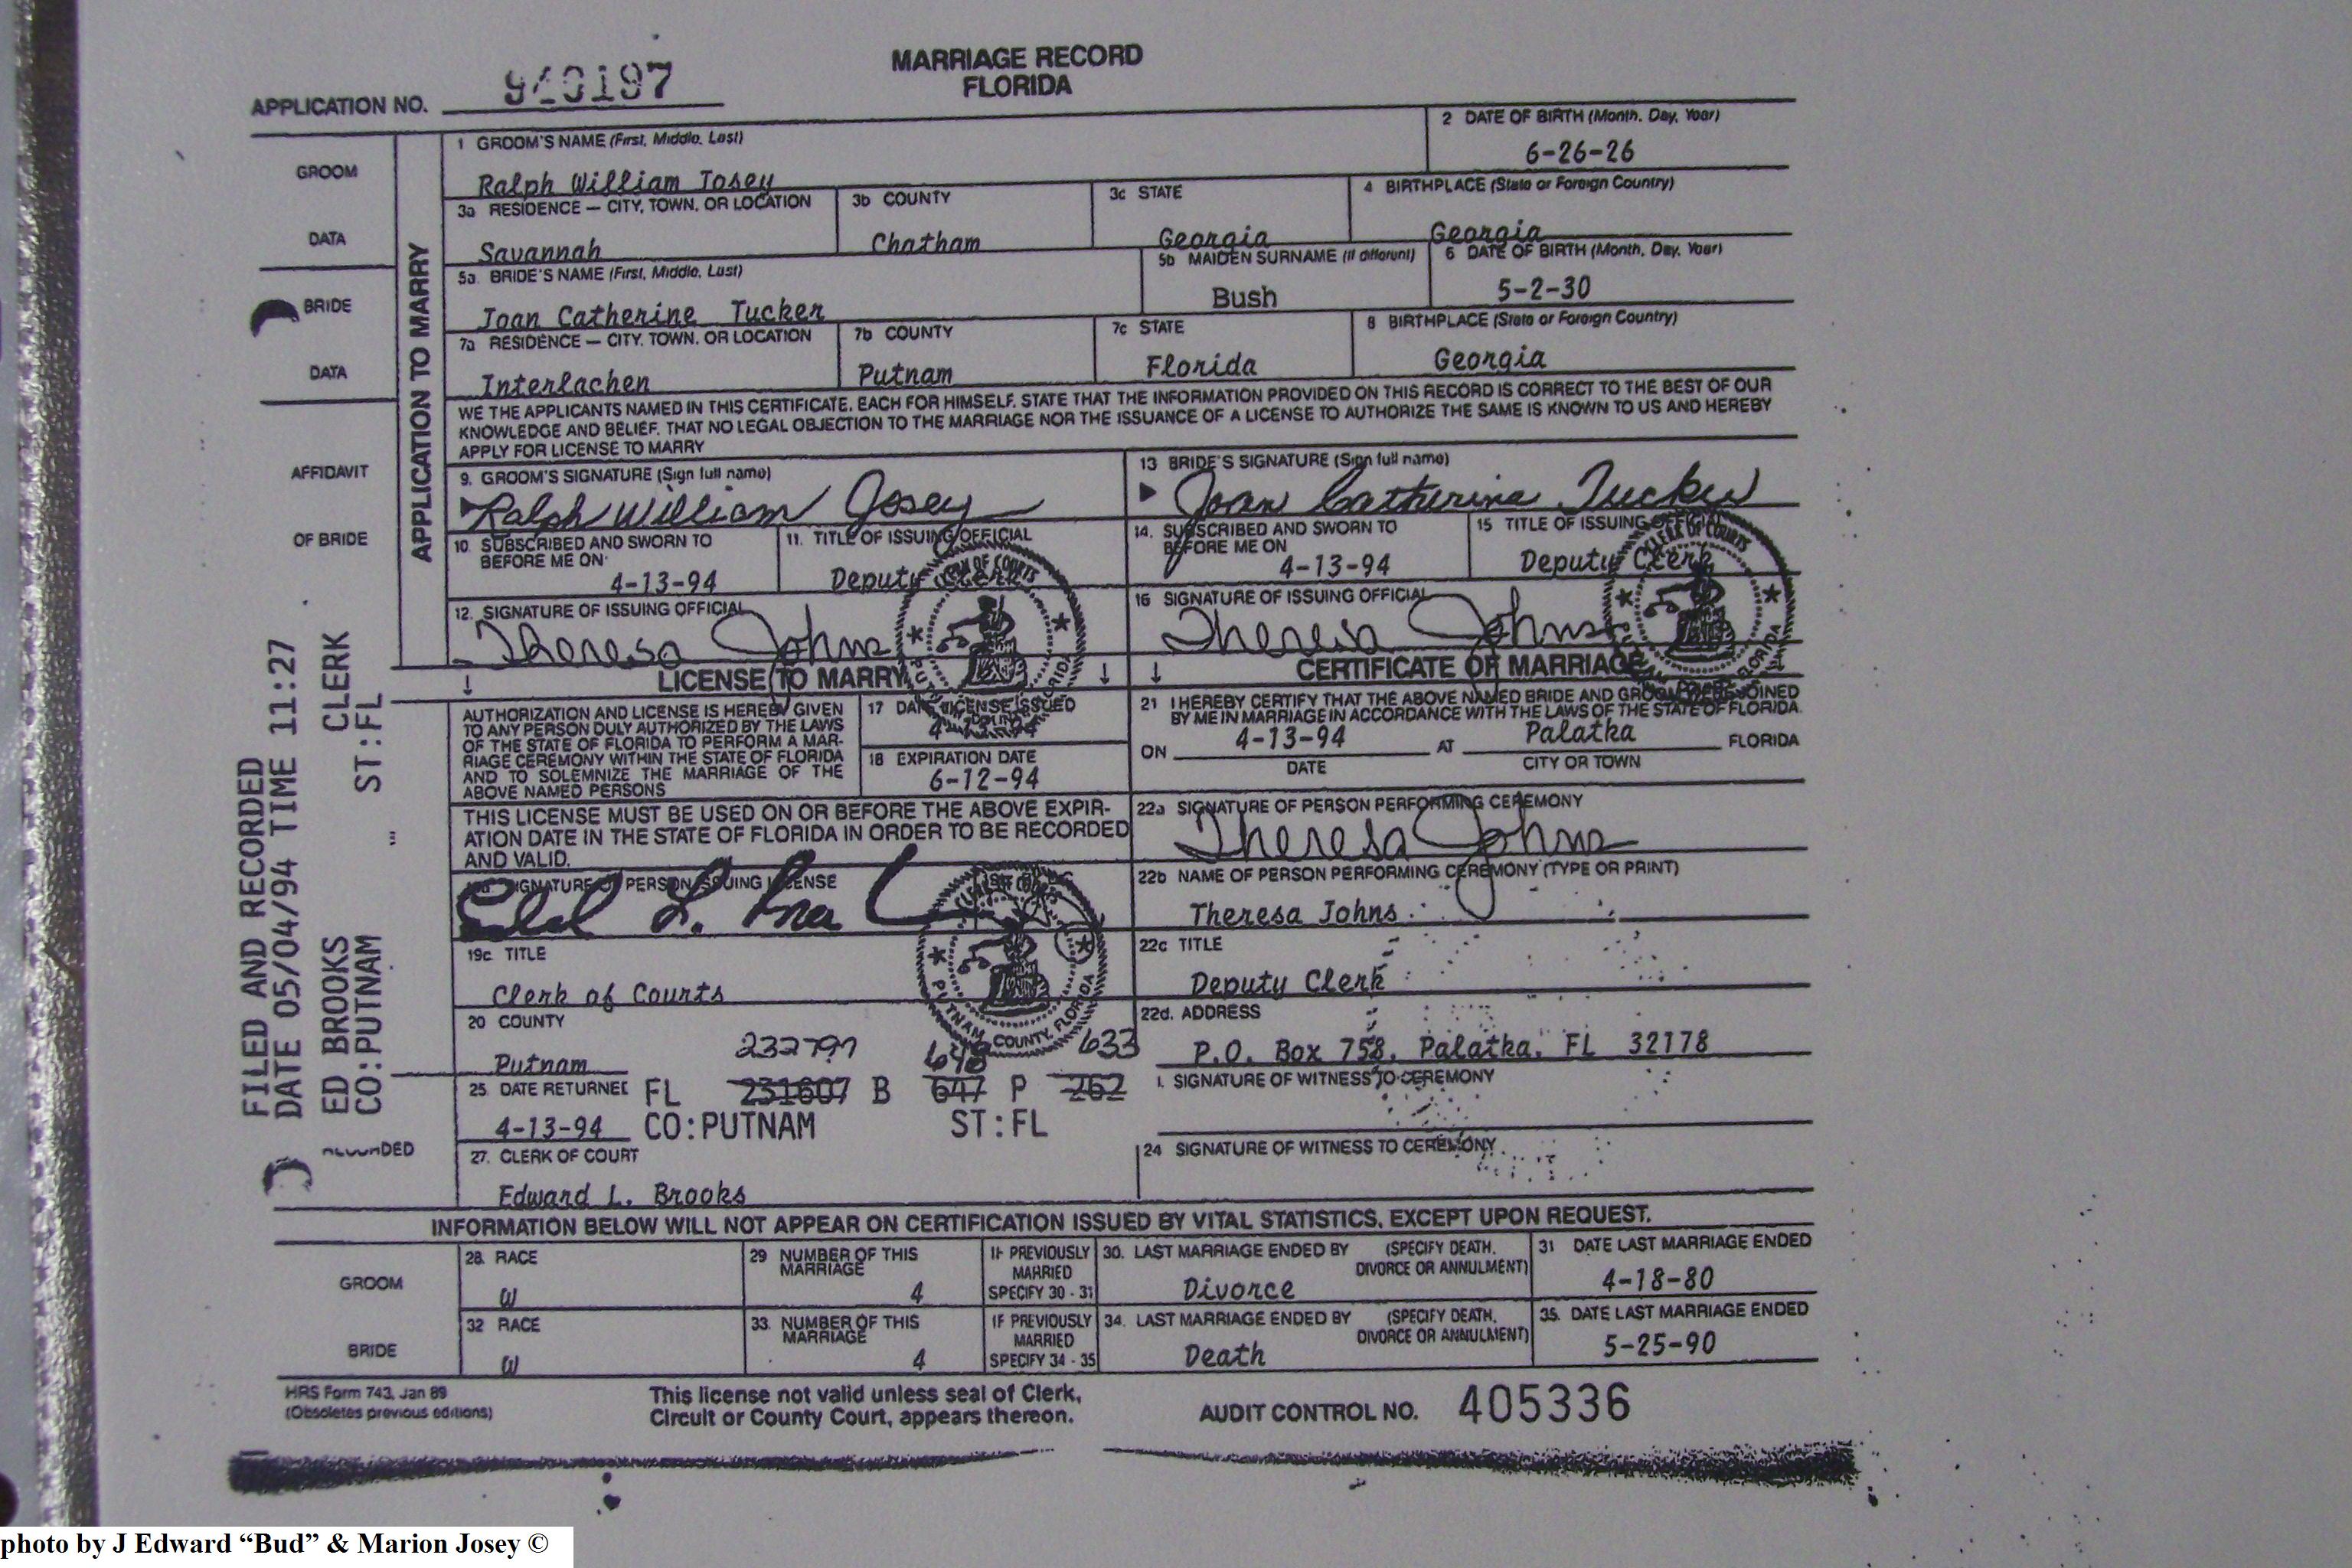 MARRIAGE RECORD
FLORIDA
APPLICATION NO. 940197
GROOM
DATA
BRIDE
DATA
AFFIDAVIT
OF BRIDE
APPLICATION TO MARRY
1 GROOM'S NAME (First, Middle, Last)
Ralph William Josey
2 DATE OF BIRTH (Month, Day, Year)
6-26-26
3a RESIDENCE — CITY, TOWN, OR LOCATION
Savannah
3b COUNTY
Chatham
3c STATE
Georgia
4 BIRTHPLACE (State or Foreign Country)
Georgia
5a. BRIDE'S NAME (First, Middle, Last)
Joan Catherine Tucker
5b MAIDEN SURNAME (if different)
Bush
6 DATE OF BIRTH (Month, Day, Year)
5-2-30
7a RESIDENCE — CITY, TOWN, OR LOCATION
Interlachen
7b COUNTY
Putnam
7c STATE
Florida
8 BIRTHPLACE (State or Foreign Country)
Georgia
WE THE APPLICANTS NAMED IN THIS CERTIFICATE, EACH FOR HIMSELF, STATE THAT THE INFORMATION PROVIDED ON THIS RECORD IS CORRECT TO THE BEST OF OUR
KNOWLEDGE AND BELIEF, THAT NO LEGAL OBJECTION TO THE MARRIAGE NOR THE ISSUANCE OF A LICENSE TO AUTHORIZE THE SAME IS KNOWN TO US AND HEREBY
APPLY FOR LICENSE TO MARRY
9. GROOM'S SIGNATURE (Sign full name)
Ralph William Josey
13 BRIDE'S SIGNATURE (Sign full name)
Joan Catherine Tucker
10. SUBSCRIBED AND SWORN TO
BEFORE ME ON
4-13-94
11. TITLE OF ISSUING OFFICIAL
Deputy Clerk
14. SUBSCRIBED AND SWORN TO
BEFORE ME ON
4-13-94
15 TITLE OF ISSUING OFFICIAL
Deputy Clerk
12. SIGNATURE OF ISSUING OFFICIAL
Theresa Johns
16 SIGNATURE OF ISSUING OFFICIAL
Theresa Johns
CLERK OF COURTS
LICENSE TO MARRY
CERTIFICATE OF MARRIAGE
AUTHORIZATION AND LICENSE IS HEREBY GIVEN
TO ANY PERSON DULY AUTHORIZED BY THE LAWS
OF THE STATE OF FLORIDA TO PERFORM A MAR-
RIAGE CEREMONY WITHIN THE STATE OF FLORIDA
AND TO SOLEMNIZE THE MARRIAGE OF THE
ABOVE NAMED PERSONS
17 DATE LICENSE ISSUED
18 EXPIRATION DATE
6-12-94
21 I HEREBY CERTIFY THAT THE ABOVE NAMED BRIDE AND GROOM WERE JOINED
BY ME IN MARRIAGE IN ACCORDANCE WITH THE LAWS OF THE STATE OF FLORIDA.
ON 4-13-94 AT Palatka FLORIDA
DATE CITY OR TOWN
THIS LICENSE MUST BE USED ON OR BEFORE THE ABOVE EXPIR-
ATION DATE IN THE STATE OF FLORIDA IN ORDER TO BE RECORDED
AND VALID.
22a SIGNATURE OF PERSON PERFORMING CEREMONY
Theresa Johns
SIGNATURE OF PERSON ISSUING LICENSE
22b NAME OF PERSON PERFORMING CEREMONY (TYPE OR PRINT)
Theresa Johns
19c TITLE
Clerk of Courts
PUTNAM COUNTY, FLORIDA
22c TITLE
Deputy Clerk
20 COUNTY
Putnam
22d. ADDRESS
P.O. Box 758, Palatka, FL 32178
232797 648 633
25. DATE RETURNED
4-13-94
FL 231607 B 647 P 262
CO:PUTNAM ST:FL
SIGNATURE OF WITNESS TO CEREMONY
24 SIGNATURE OF WITNESS TO CEREMONY
27. CLERK OF COURT
Edward L. Brooks
FILED AND RECORDED
DATE 05/04/94 TIME 11:27
ED BROOKS CLERK
CO:PUTNAM ST:FL
INFORMATION BELOW WILL NOT APPEAR ON CERTIFICATION ISSUED BY VITAL STATISTICS, EXCEPT UPON REQUEST.
GROOM
28. RACE
W
29 NUMBER OF THIS
MARRIAGE
4
IF PREVIOUSLY
MARRIED
SPECIFY 30 - 31
30. LAST MARRIAGE ENDED BY (SPECIFY DEATH,
DIVORCE OR ANNULMENT)
Divorce
31 DATE LAST MARRIAGE ENDED
4-18-80
BRIDE
32 RACE
W
33. NUMBER OF THIS
MARRIAGE
4
IF PREVIOUSLY
MARRIED
SPECIFY 34 - 35
34. LAST MARRIAGE ENDED BY (SPECIFY DEATH,
DIVORCE OR ANNULMENT)
Death
35. DATE LAST MARRIAGE ENDED
5-25-90
HRS Form 743, Jan 89
(Obsoletes previous editions)
This license not valid unless seal of Clerk,
Circuit or County Court, appears thereon.
AUDIT CONTROL NO. 405336
photo by J Edward “Bud” & Marion Josey ©